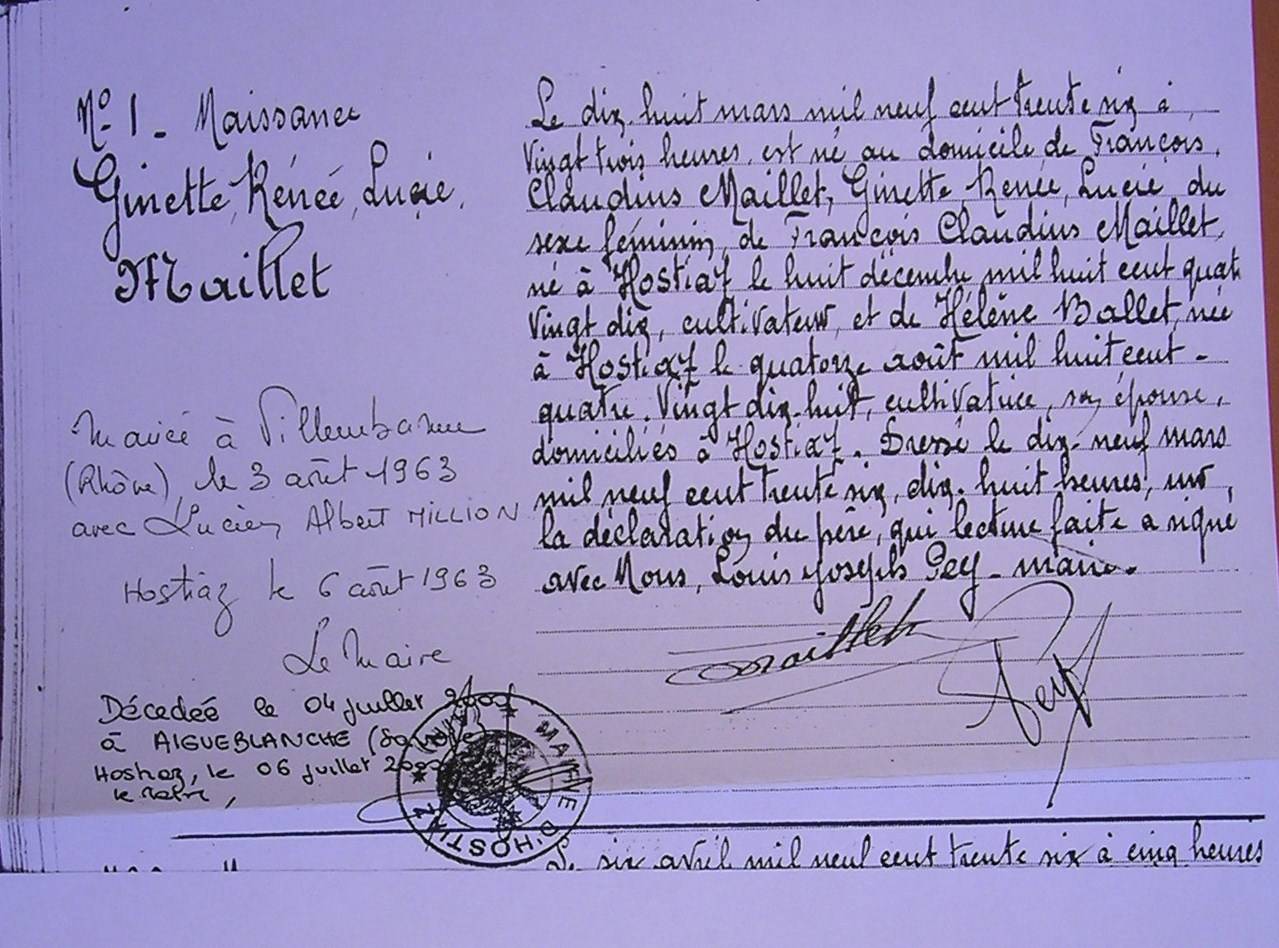 N° 1 - Naissance
Ginette, Rénée, Lucie,
Maillet
Mariée à Villeurbanne
(Rhône), le 3 août 1963
avec Lucien Albert MILLION
Hostiaz le 6 août 1963
Le Maire
Décedée le 04 juillet
à AIGUEBLANCHE (Savoie)
Hostiaz, le 06 juillet
le Maire,
Le dix-huit mars mil neuf cent trente six à
Vingt trois heures, est né au domicile de François,
Claudius Maillet, Ginette, Renée, Lucie du
sexe féminin, de François Claudius Maillet,
né à Hostiaz le huit décembre mil huit cent quatre
Vingt dix, cultivateur, et de Hélène Ballet, née
à Hostiaz le quatorze août mil huit cent -
quatre-Vingt dix-huit, cultivatrice, son épouse,
domiciliés à Hostiaz. Dressé le dix-neuf mars
mil neuf cent trente six, dix-huit heures, sur
la déclaration du père, qui lecture faite a signé
avec Nous, Louis Joseph Pey - maire.
Maillet
Pey
MAIRIE D'HOSTIAZ
Le six avril mil neuf cent trente six à cinq heures